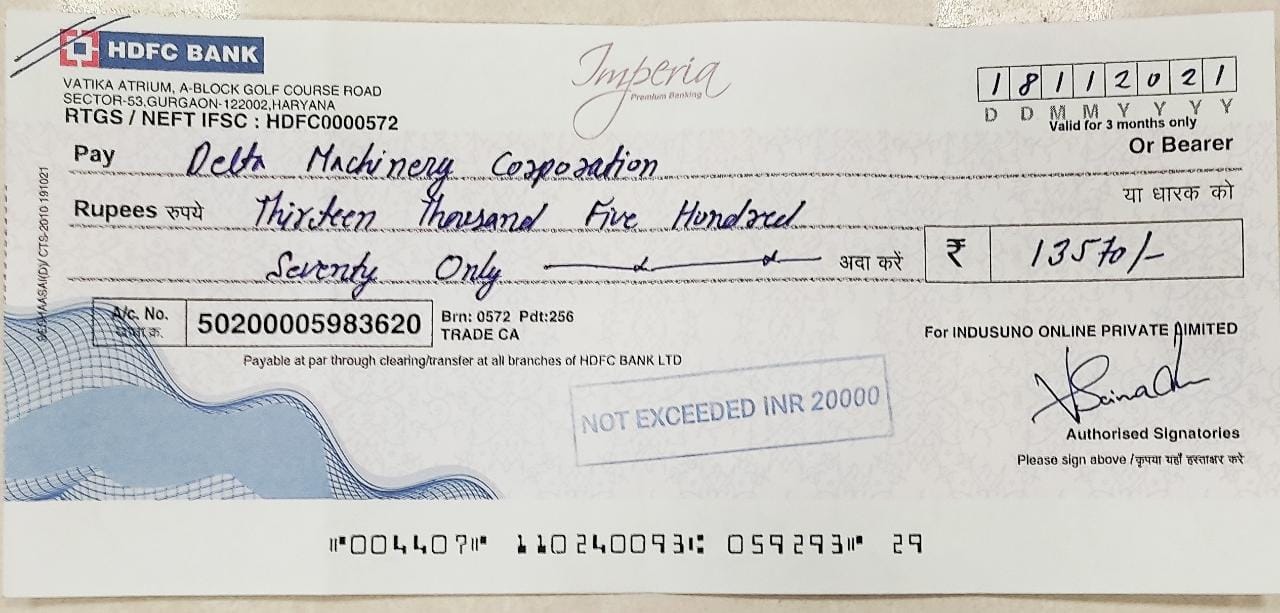 HDFC BANK
Imperia
Premium Banking
VATIKA ATRIUM, A-BLOCK GOLF COURSE ROAD
SECTOR-53,GURGAON-122002,HARYANA
RTGS / NEFT IFSC : HDFC0000572
1 8 1 1 2 0 2 1
D D M M Y Y Y Y
Valid for 3 months only
Pay Delta Machinery Corporation Or Bearer
या धारक को
Rupees रुपये Thirteen Thousand Five Hundred
Seventy Only अदा करें ₹ 13570/-
CTS-2010 191021
A/c. No. 50200005983620 Brn: 0572 Pdt:256
TRADE CA
Payable at par through clearing/transfer at all branches of HDFC BANK LTD
For INDUSUNO ONLINE PRIVATE LIMITED
NOT EXCEEDED INR 20000
Authorised Signatories
Please sign above / कृपया यहाँ हस्ताक्षर करें
⑈004407⑈ 110240093⑆ 059293⑈ 29